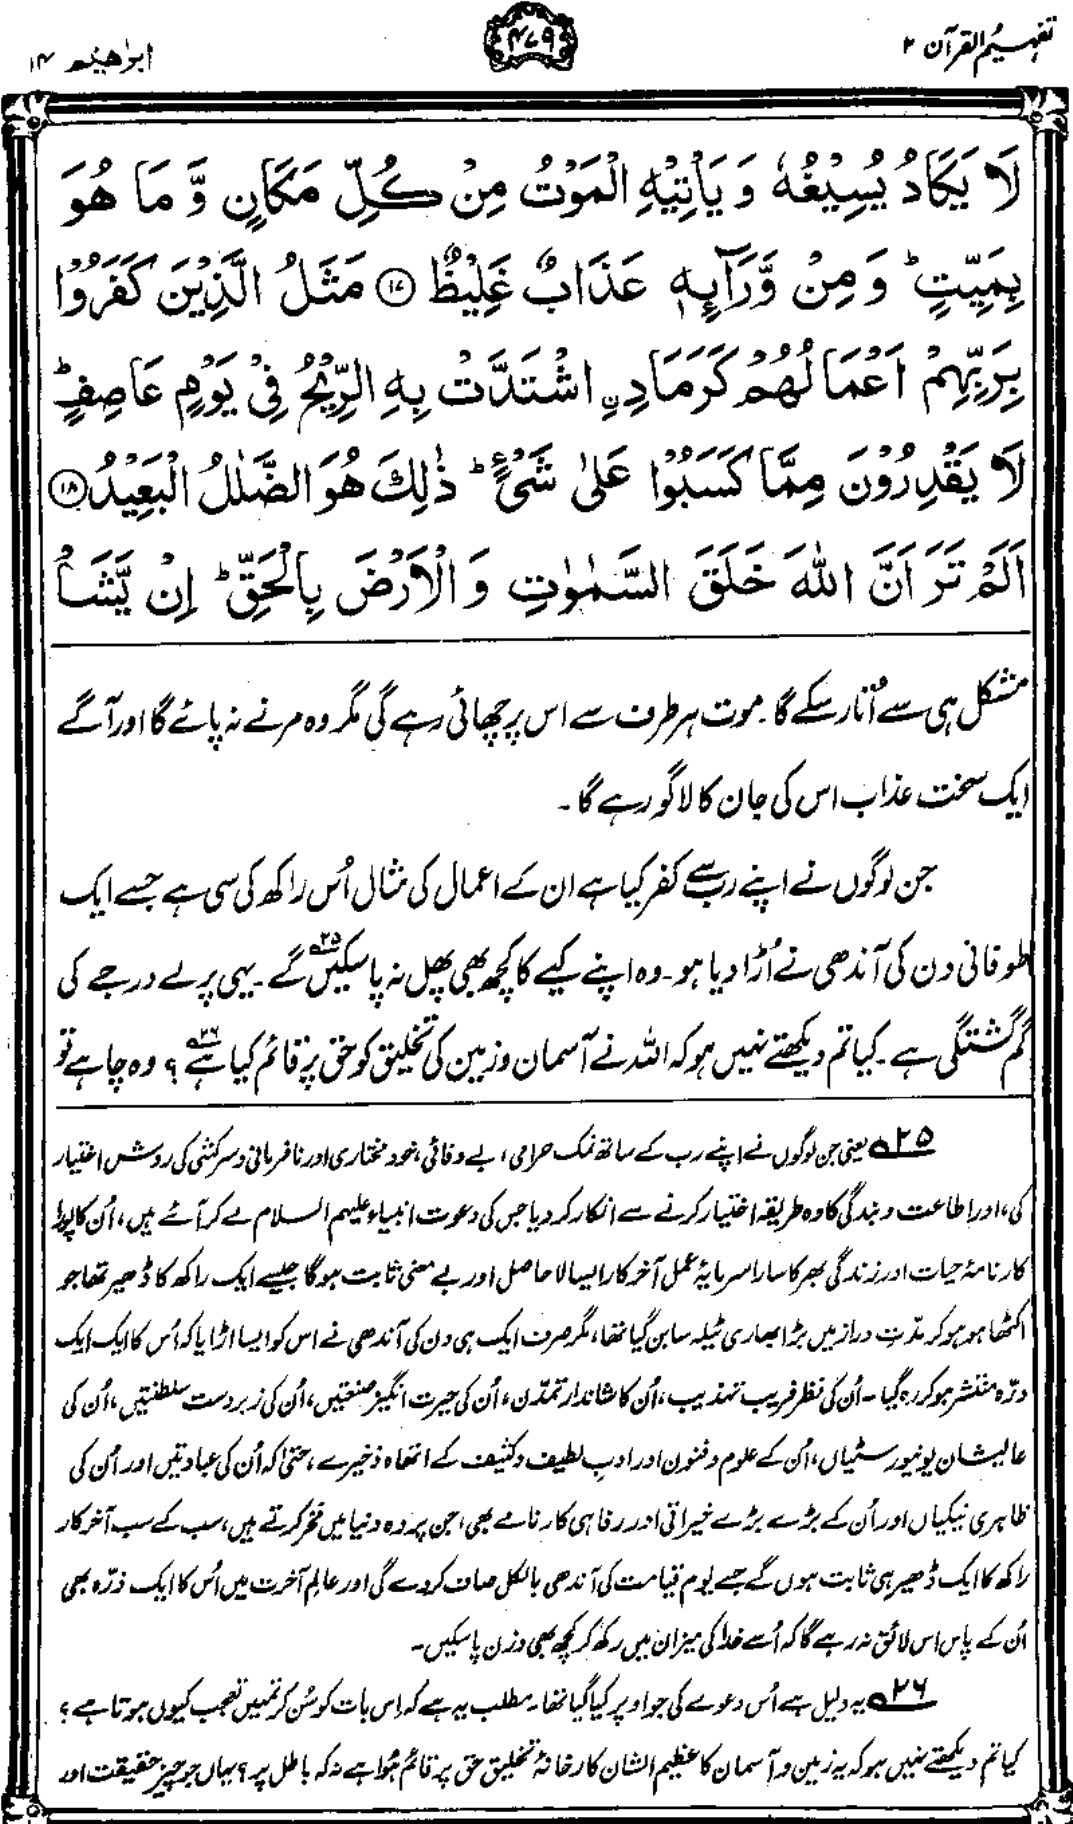 تفہیم القرآن ۲
۴۷۹
ابرٰھیم ۱۴
لَا يَكَادُ يُسِيْغُهٗ وَ يَأْتِيْهِ الْمَوْتُ مِنْ كُلِّ مَكَانٍ وَّ مَا هُوَ
بِمَيِّتٍ ؕ وَ مِنْ وَّرَآىِٕهٖ عَذَابٌ غَلِيْظٌ ۝۱۷ مَثَلُ الَّذِيْنَ كَفَرُوْا
بِرَبِّهِمْ اَعْمَالُهُمْ كَرَمَادِ ِ۟اشْتَدَّتْ بِهِ الرِّيْحُ فِيْ يَوْمٍ عَاصِفٍ ؕ
لَا يَقْدِرُوْنَ مِمَّا كَسَبُوْا عَلٰى شَيْءٍ ؕ ذٰلِكَ هُوَ الضَّلٰلُ الْبَعِيْدُ ۝۱۸
اَلَمْ تَرَ اَنَّ اللّٰهَ خَلَقَ السَّمٰوٰتِ وَ الْاَرْضَ بِالْحَقِّ ؕ اِنْ يَّشَاْ
مشکل ہی سے اُتار سکے گا۔ موت ہر طرف سے اس پر چھائی رہے گی مگر وہ مرنے نہ پائے گا اور آگے
ایک سخت عذاب اس کی جان کا لاگو رہے گا۔
جن لوگوں نے اپنے رب سے کفر کیا ہے ان کے اعمال کی مثال اُس راکھ کی سی ہے جسے ایک
طوفانی دن کی آندھی نے اُڑا دیا ہو۔ وہ اپنے کیے کا کچھ بھی پھل نہ پا سکیں گے۔۲۵ یہی پرلے درجے کی
گم گشتگی ہے۔ کیا تم دیکھتے نہیں ہو کہ اللہ نے آسمان و زمین کی تخلیق کو حق پر قائم کیا ہے۲۶ ؟ وہ چاہے تو
۲۵ یعنی جن لوگوں نے اپنے رب کے ساتھ نمک حرامی، بے وفائی، خود مختاری اور نافرمانی و سرکشی کی روش اختیار
کی، اور اطاعت و بندگی کا وہ طریقہ اختیار کرنے سے انکار کر دیا جس کی دعوت انبیاء علیہم السلام لے کر آئے ہیں، اُن کا پورا
کارنامۂ حیات اور زندگی بھر کا سارا سرمایۂ عمل آخر کار ایسا لاحاصل اور بے معنی ثابت ہوگا جیسے ایک راکھ کا ڈھیر تھا جو
اکٹھا ہو ہو کر مدّتِ دراز میں بڑا بھاری ٹیلہ سا بن گیا تھا، مگر صرف ایک ہی دن کی آندھی نے اس کو ایسا اڑایا کہ اُس کا ایک ایک
ذرّہ منتشر ہو کر رہ گیا۔ اُن کی نظر فریب تہذیب، اُن کا شاندار تمدّن، اُن کی حیرت انگیز صنعتیں، اُن کی زبردست سلطنتیں، اُن کی
عالیشان یونیورسٹیاں، اُن کے علوم و فنون اور ادبِ لطیف و کثیف کے اتھاہ ذخیرے، حتیٰ کہ اُن کی عبادتیں اور اُن کی
ظاہری نیکیاں اور اُن کے بڑے بڑے خیراتی اور رفاہی کارنامے بھی، جن پر وہ دنیا میں فخر کرتے ہیں، سب کے سب آخر کار
راکھ کا ایک ڈھیر ہی ثابت ہوں گے جسے یومِ قیامت کی آندھی بالکل صاف کر دے گی اور عالمِ آخرت میں اُس کا ایک ذرّہ بھی
اُن کے پاس اس لائق نہ رہے گا کہ اُسے خدا کی میزان میں رکھ کر کچھ بھی وزن پا سکیں۔
۲۶ یہ دلیل ہے اُس دعوے کی جو اوپر کیا گیا تھا۔ مطلب یہ ہے کہ اِس بات کو سُن کر تمہیں تعجب کیوں ہوتا ہے؟
کیا تم دیکھتے نہیں ہو کہ یہ زمین و آسمان کا عظیم الشان کارخانۂ تخلیق حق پر قائم ہُوا ہے نہ کہ باطل پر؟ یہاں جو چیز حقیقت اور